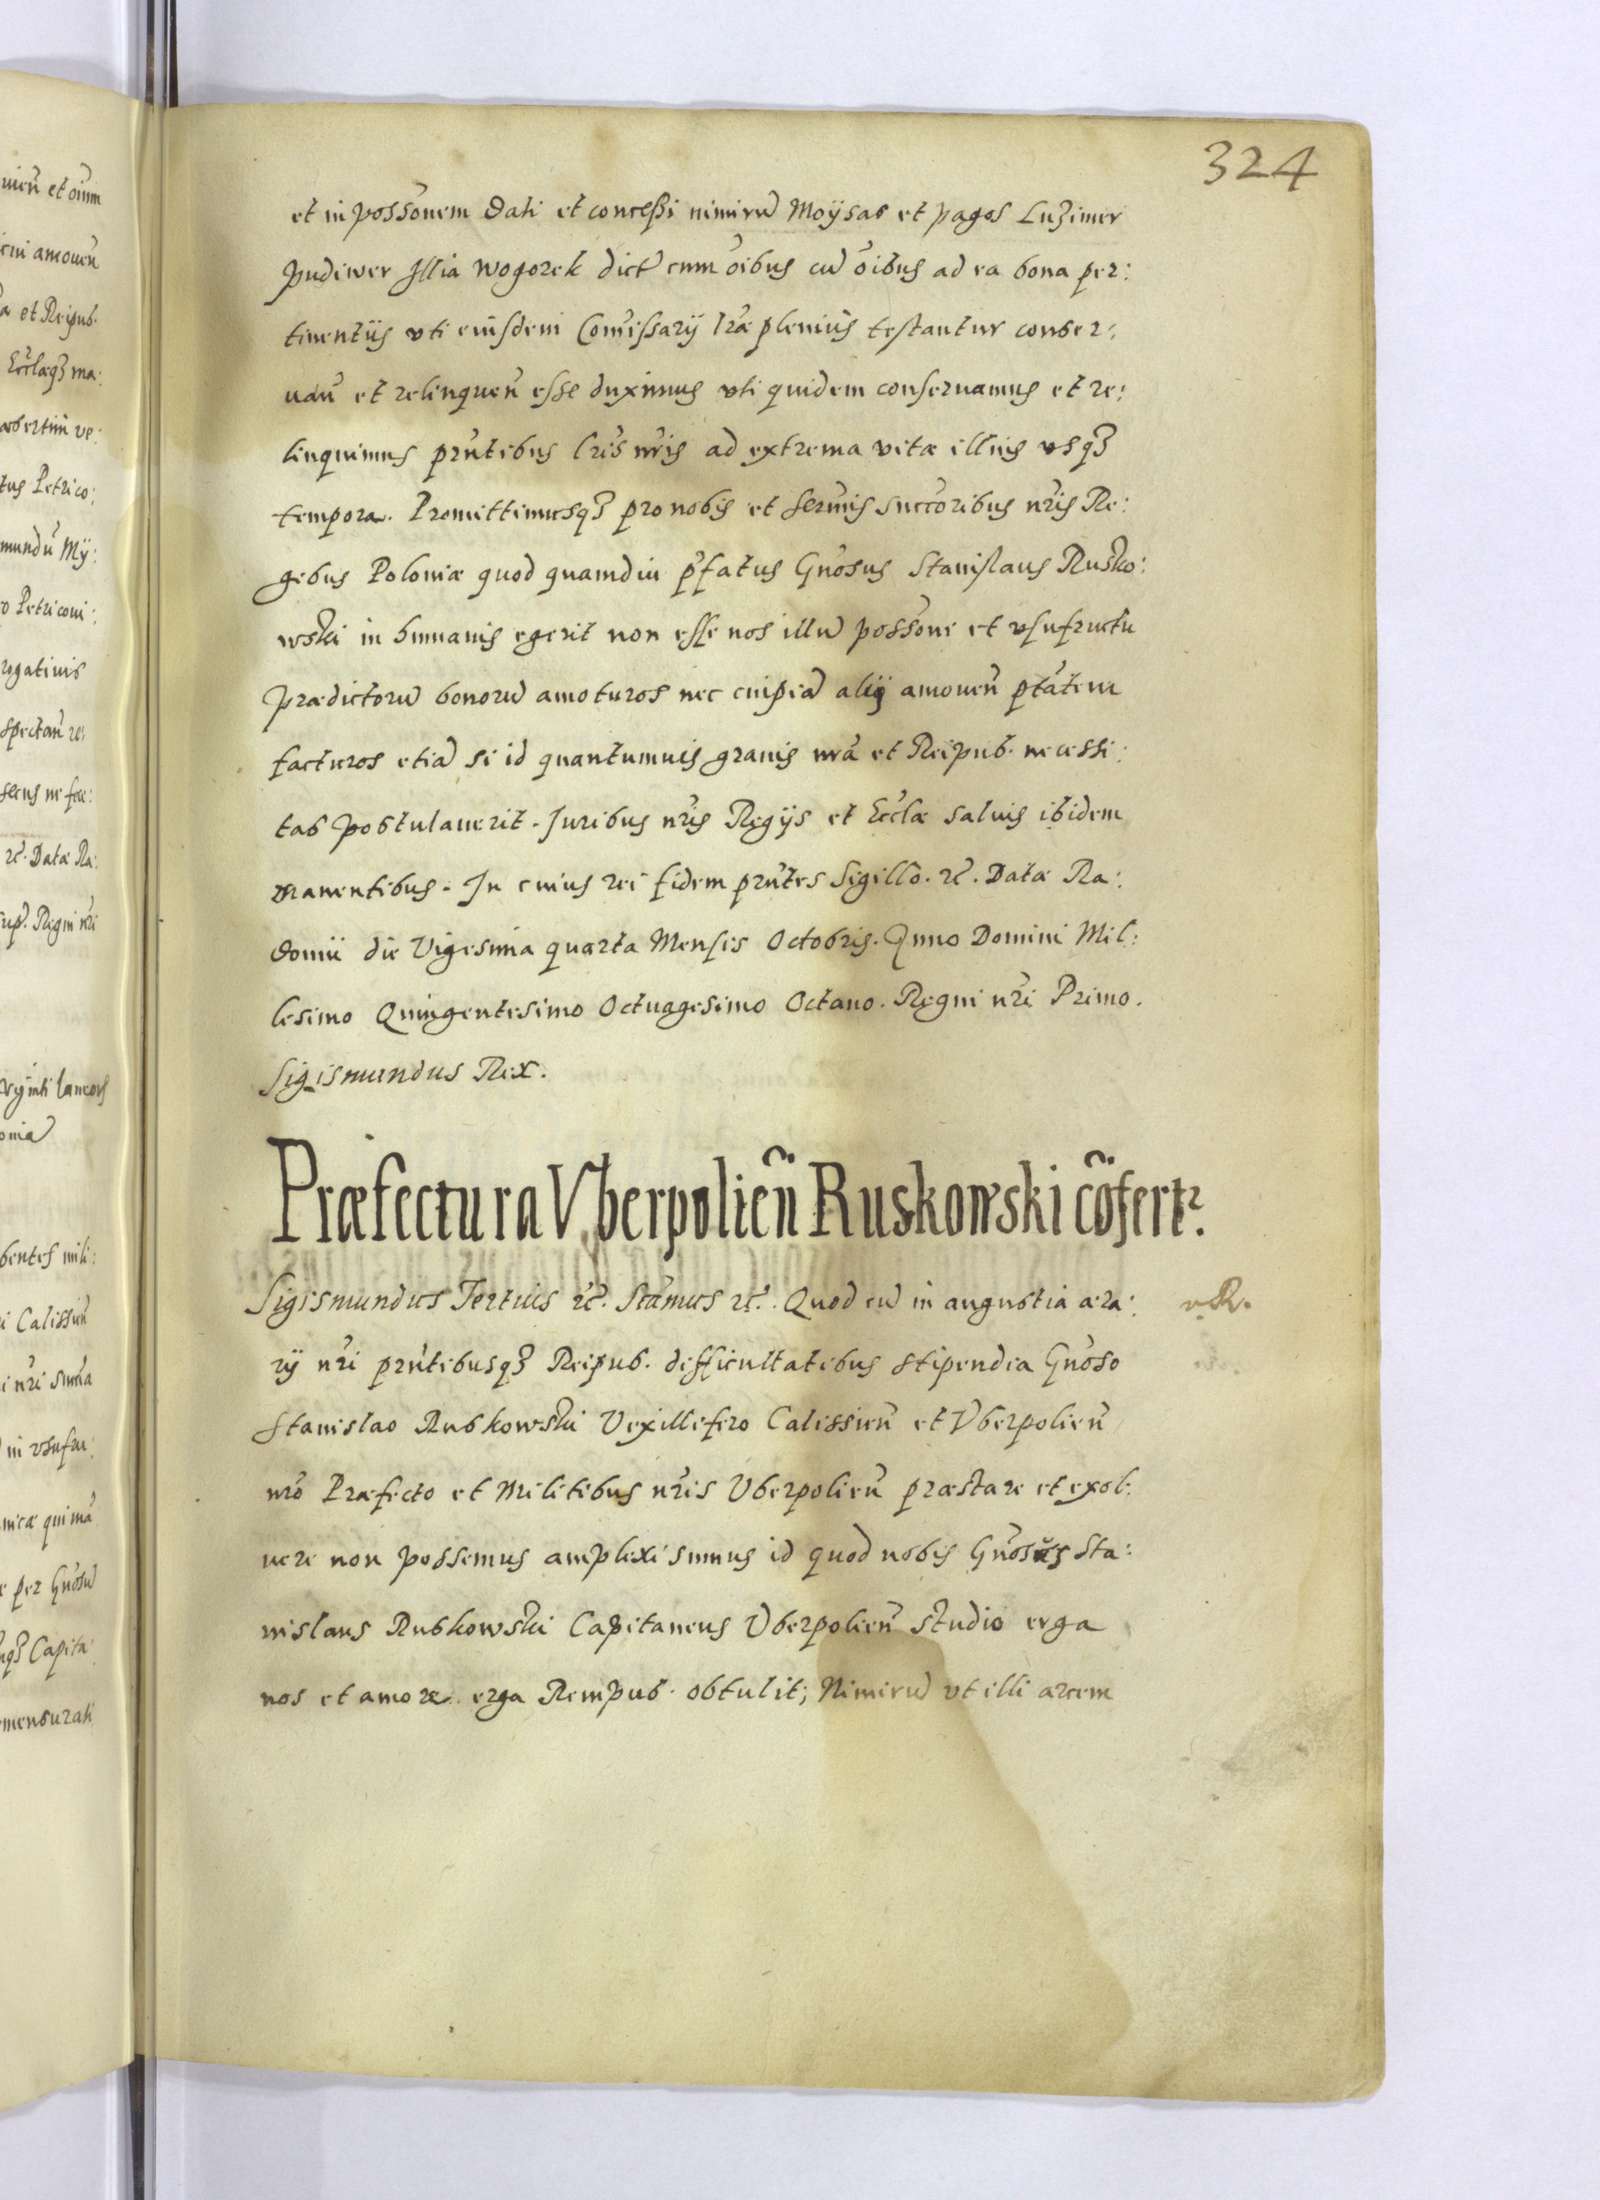 324
et in possõnem dati et concessi nimirũ Moÿsas et pagos Luzimer
Pudiwer Illia Wogorek dict cum õibus cũ õibus ad ea bona per:
tinentijs vti eiusdem Com̃issarij lr̃æ plenius testantur conser:
uañ et relinqueñ esse duximus vti quidem conseruamus et re:
linquimus prñtibus lr̃is nr̃is ad extrema vitæ illius vsqȝ
tempora. Promittimusqȝ pro nobis et Serm̃is Succõribus nr̃is Re:
gibus Poloniæ quod quamdiu p̃fatus Gñosus Stanislaus Rusko:
wski in humanis egerit non esse nos illũ possõne et vsufructu
prædictorũ bonorũ amoturos nec cuipiã alij amoueñ ptãtem
facturos etiã si id quantumuis grauis nrã et Reipub. necessi:
tas postulauerit. Iuribus nr̃is Regijs et Eccl̃æ saluis ibidem
manentibus. In cuius rei fidem prñtes Sigillo. rc̃. Datæ Ra:
domii die Vigesima quarta Mensis Octobris. Anno Domini Mil:
lesimo Quingentesimo Octuagesimo Octauo. Regni nr̃i Primo.
Sigismundus Rex.
Præfectura Vberpolieñ Ruskowski cõfertr.
Sigismundus Tertius rc̃. Sc̃amus rc̃. Quod cũ in angustia æra:
rij nr̃i prñtibusqȝ Reipub. difficultatibus stipendia Gñoso
Stanislao Ruskowski Vexillifero Calissieñ et Vberpolieñ
nrõ Præfecto et Militibus nr̃is Vberpolieñ præstare et exol:
uere non possemus amplexi sumus id quod nobis Gñosus Sta:
nislaus Ruskowski Capitaneus Vberpolieñ studio erga
nos et amore erga Rempub. obtulit; Nimirũ vt illi arcem